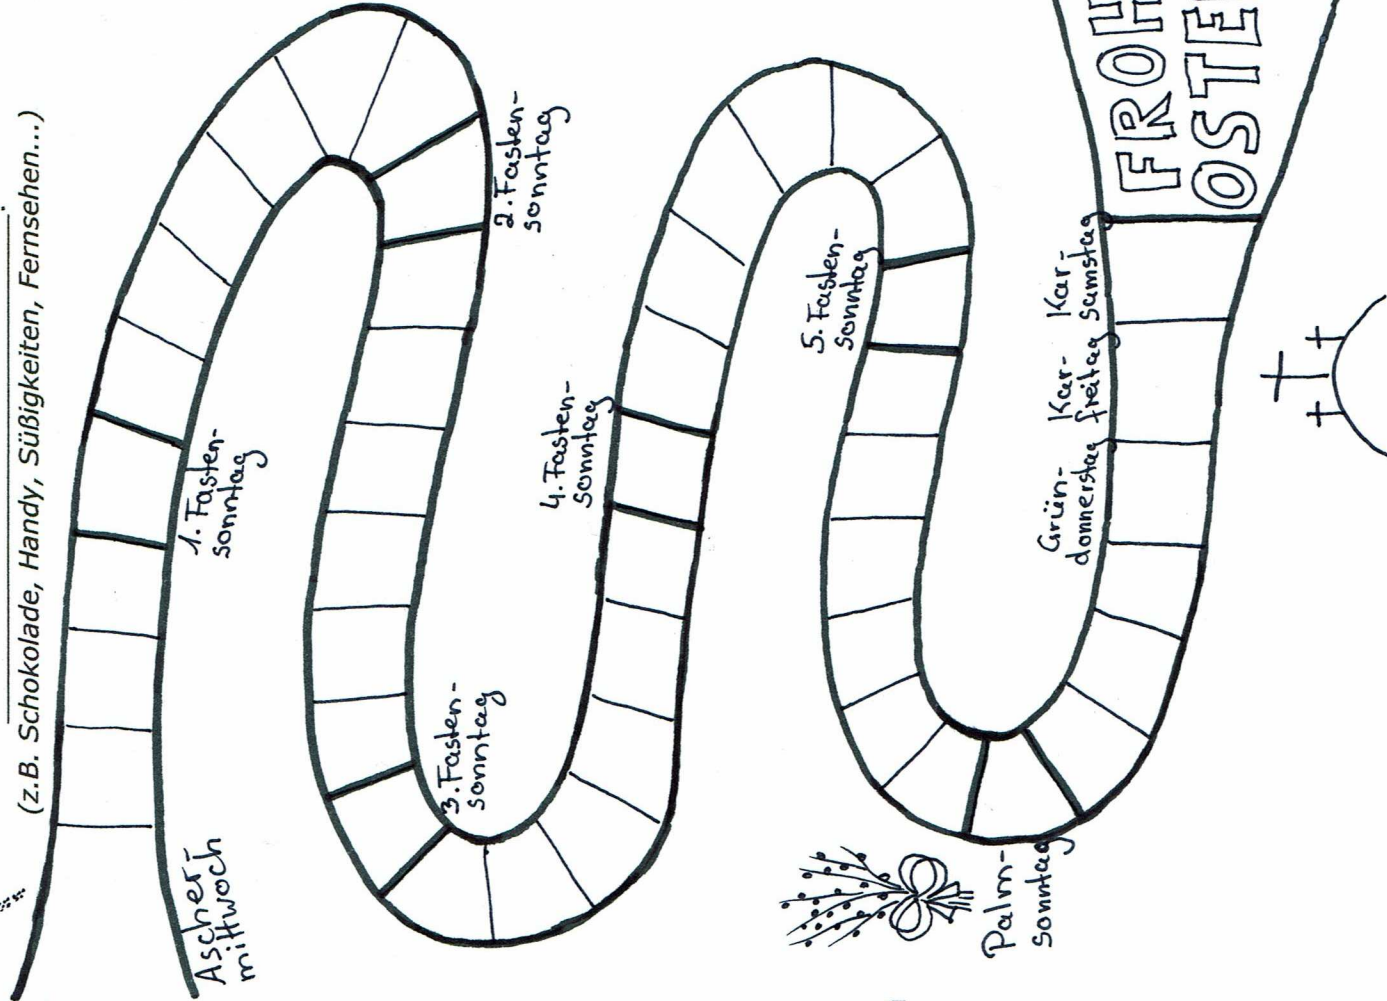 (z.B. Schokolade, Handy, Süßigkeiten, Fernsehen...)
Ascher-
mittwoch
1. Fasten-
sonntag
2. Fasten-
sonntag
3. Fasten-
sonntag
4. Fasten-
sonntag
5. Fasten-
sonntag
Palm-
sonntag
Grün-
donnerstag
Kar-
freitag
Kar-
samstag
FROH
OSTE